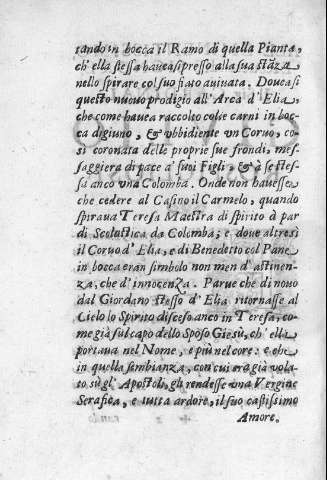 tando in bocca il Ramo di quella Pianta,
ch'ella stessa haueasi presso alla sua stāza
nello spirare col suo fiato auiuata. Doueasi
questo nuouo prodigio all'Arca d'Elia,
che come hauea raccolto colle carni in boc-
ca digiuno, & vbbidiente vn Coruo, co-
sì coronata delle proprie sue frondi, mes-
saggiera di pace a' suoi Figli, & à se stes-
sa anco vna Colomba. Onde non hauesse
che cedere al Casino il Carmelo, quando
spiraua Teresa Maestra di spirito à par
di Scolastica da Colomba; e doue altresì
il Coruo d'Elia, e di Benedetto col Pane
in bocca eran simbolo non men d'astinen-
za, che d'innocenza. Parue che di nuouo
dal Giordano stesso d'Elia ritornasse al
Cielo lo Spirito disceso anco in Teresa, co-
me già sul capo dello Sposo Giesù, ch'ella
portaua nel Nome, e più nel core: e che
in quella sembianza, con cui era già vola-
to sù gli Apostoli, gli rendesse vna Vergine
Serafica, e tutta ardore, il suo castissimo
Amore.